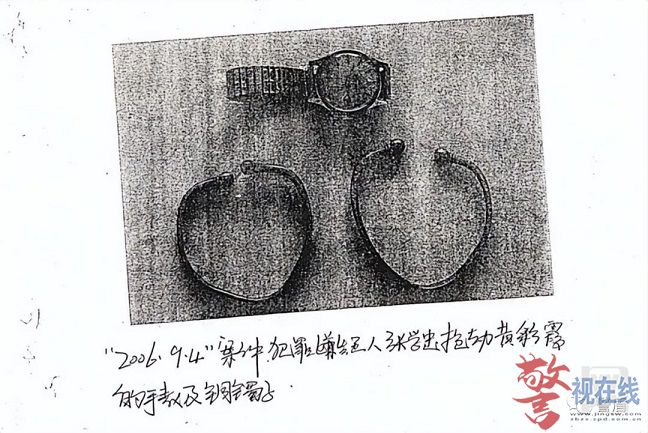 "2006.9.4"案件犯罪嫌疑人张学忠抢劫黄彩霞
的手表及铜镯子.
警视在线
www.jingsw.com